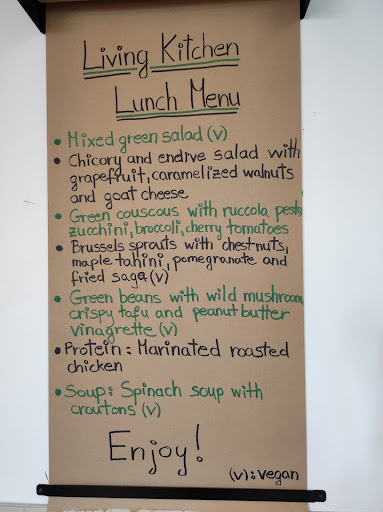 Living Kitchen
Lunch Menu
• Mixed green salad (v)
• Chicory and endive salad with
grapefruit, caramelized walnuts
and goat cheese
• Green couscous with ruccola pesto
zucchini, broccoli, cherry tomatoes
• Brussels sprouts with chestnuts,
maple tahini, pomegranate and
fried saga (v)
• Green beans with wild mushroom
crispy tofu and peanut butter
vinagrette (v)
• Protein: Marinated roasted
chicken
• Soup: Spinach soup with
croutons (v)
Enjoy!
(v): vegan